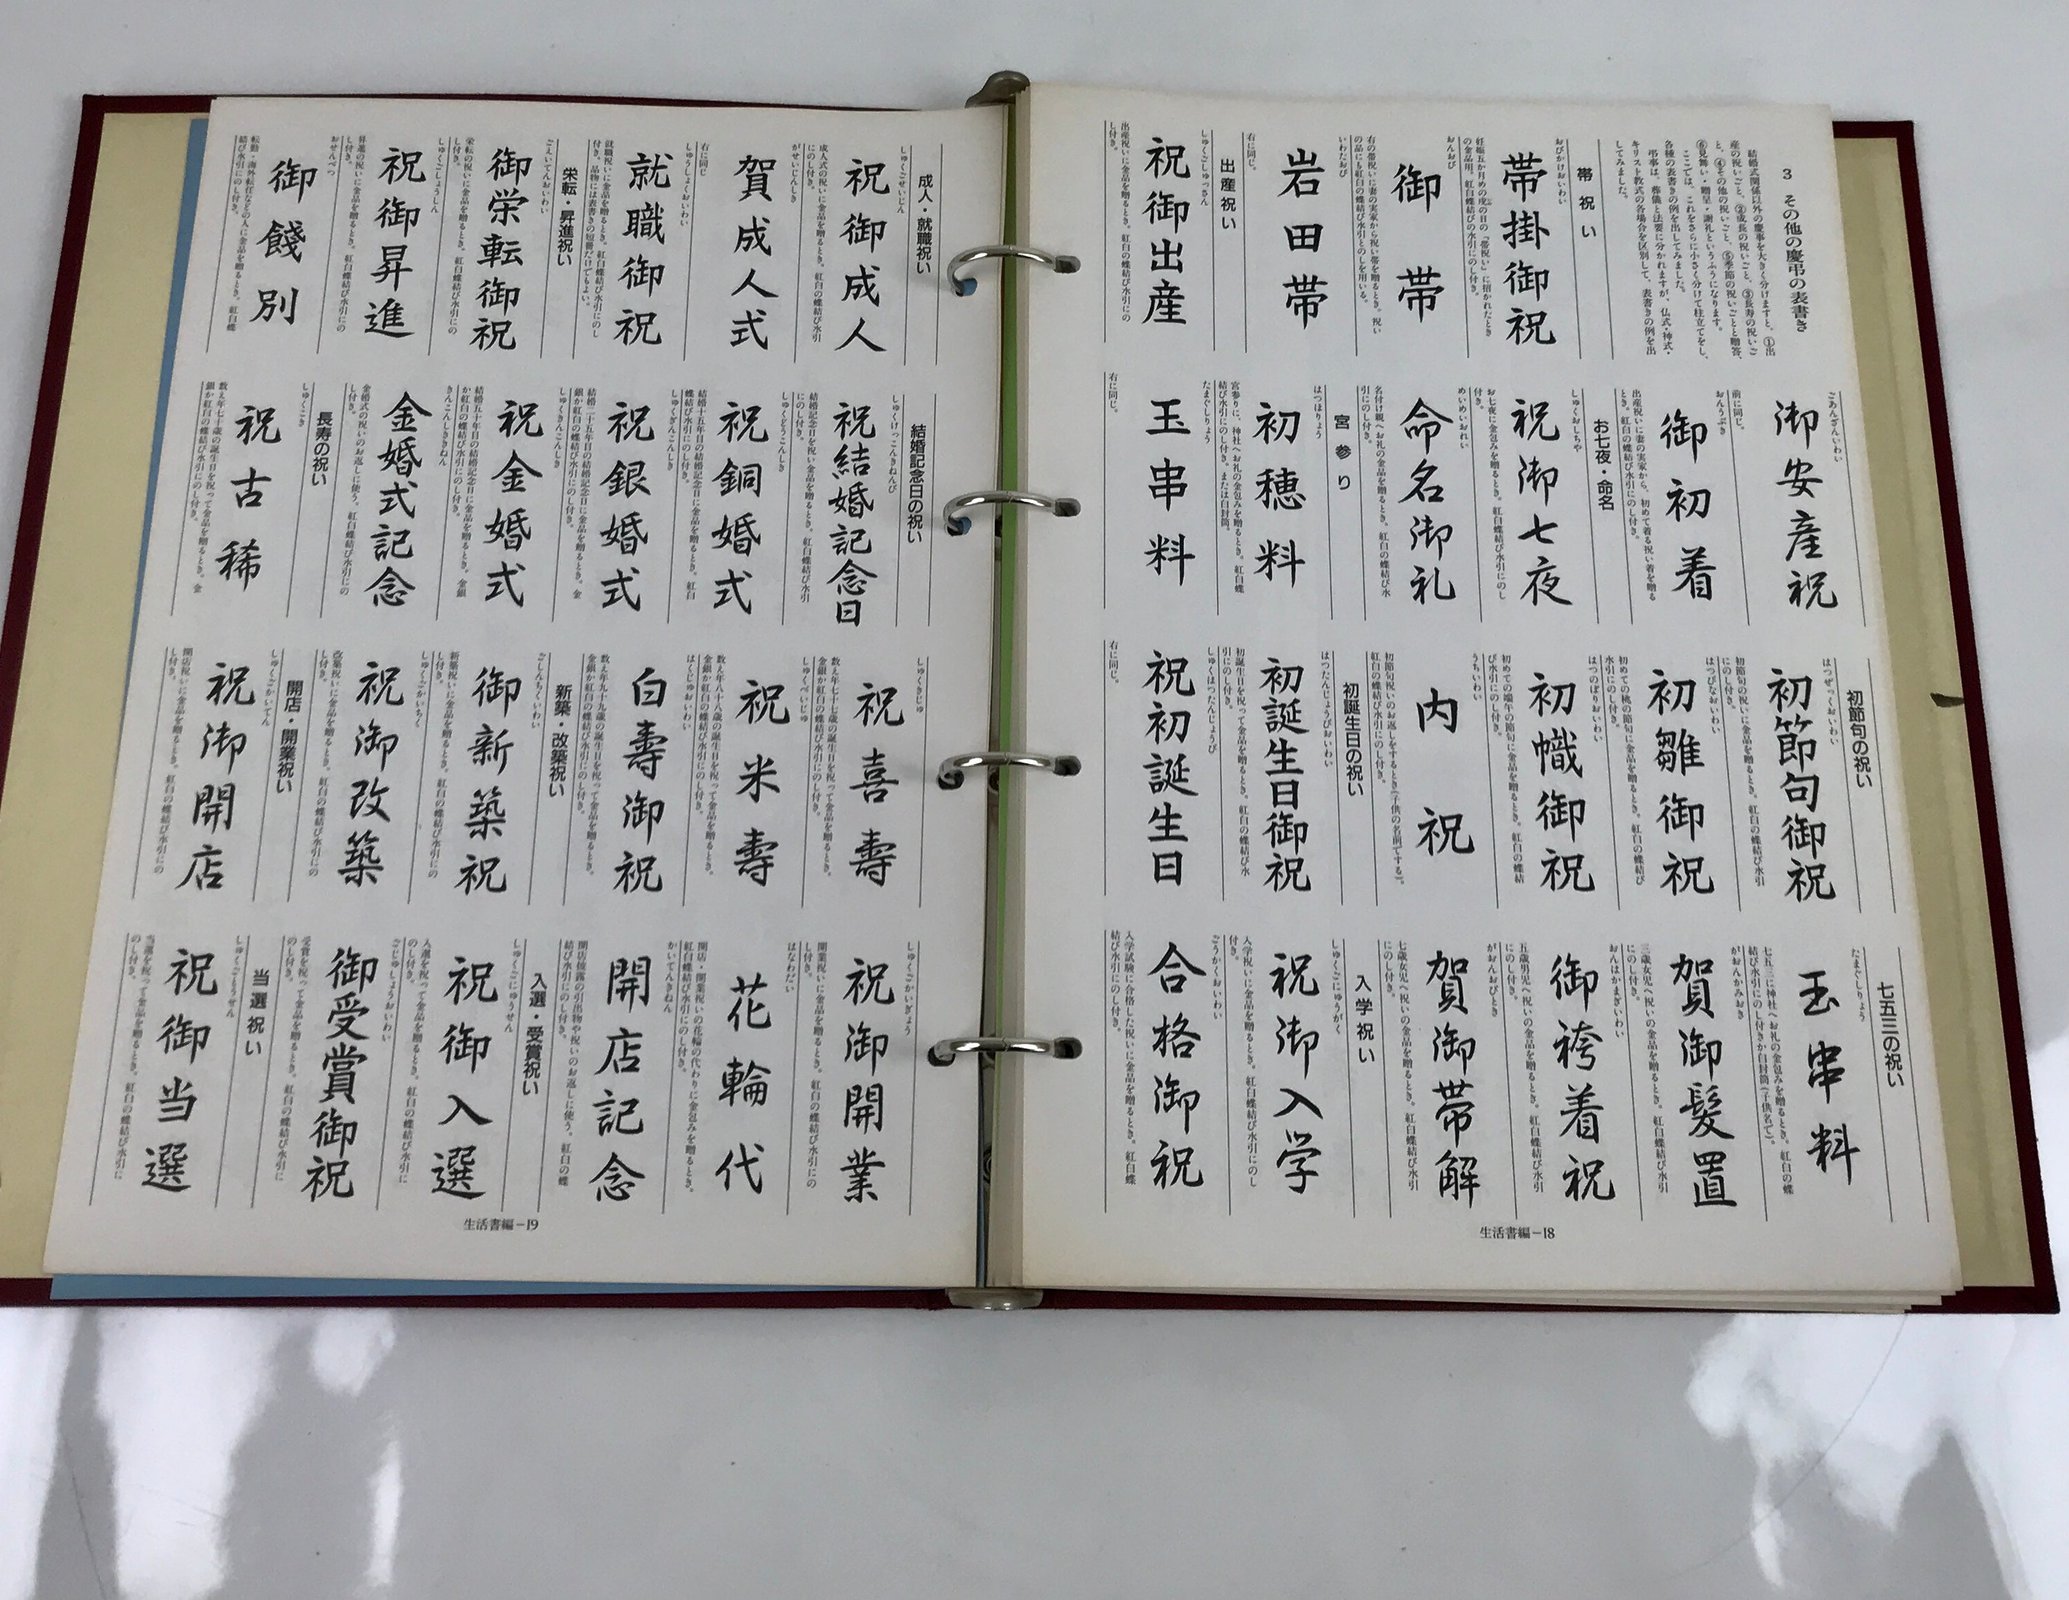 3 その他の慶弔の表書き
結婚式関係以外の慶事を大きく分けますと、①出
産の祝いごと、②成長の祝いごと、③長寿の祝いご
と、④その他の祝いごと、⑤季節の祝いごとと贈答、
⑥見舞い・贈呈・謝礼というふうになります。
ここでは、これをさらに小さく分けて柱立てをし、
各種の表書きの例を出してみました。
弔事は、葬儀と法要に分かれますが、仏式・神式・
キリスト教式の各場合を区別して、表書きの例を出
してみました。
帯祝い
おびかけおいわい
帯掛御祝
妊娠五か月めの戌の日の「帯祝い」に招かれたとき
の金品用。紅白蝶結びの水引にのし付き。
おんおび
御帯
右の帯祝いに妻の実家から祝い帯を贈るとき。祝い
の品にも紅白の蝶結び水引とのしを用いる。
いわたおび
岩田帯
右に同じ。
出産祝い
しゅくごしゅっさん
祝御出産
出産祝いに金品を贈るとき。紅白の蝶結び水引にの
し付き。
ごあんざんいわい
御安産祝
前に同じ。
おんうぶぎ
御初着
出産祝いに妻の実家から、初めて着る祝い着を贈る
とき。紅白の蝶結び水引にのし付き。
お七夜・命名
しゅくおしちや
祝御七夜
お七夜に金包みを贈るとき。紅白蝶結び水引にのし
付き。
めいめいおれい
命名御礼
名付け親へお礼の金品を贈るとき。紅白の蝶結び水
引にのし付き。
宮参り
はつほりょう
初穂料
宮参りに、神社へお礼の金包みを贈るとき。紅白蝶
結び水引にのし付き。または白封筒。
たまぐしりょう
玉串料
右に同じ。
初節句の祝い
はつぜっくおいわい
初節句御祝
初節句の祝いに金品を贈るとき。紅白の蝶結び水引
にのし付き。
はつびなおいわい
初雛御祝
初めての桃の節句に金品を贈るとき。紅白の蝶結び
水引にのし付き。
はつのぼりおいわい
初幟御祝
初めての端午の節句に金品を贈るとき。紅白の蝶結
び水引にのし付き。
うちいわい
内祝
初節句祝いのお返しをするとき（子供の名前でする）。
紅白の蝶結び水引にのし付き。
初誕生日の祝い
はつたんじょうびおいわい
初誕生日御祝
初誕生日を祝って金品を贈るとき。紅白の蝶結び水
引にのし付き。
しゅくはつたんじょうび
祝初誕生日
右に同じ。
七五三の祝い
たまぐしりょう
玉串料
七五三に神社へお礼の金包みを贈るとき。紅白の蝶
結び水引にのし付きか白封筒（子供名で）。
がおんかみおき
賀御髪置
三歳女児へ祝いの金品を贈るとき。紅白蝶結び水引
にのし付き。
おんはかまぎいわい
御袴着祝
五歳男児へ祝いの金品を贈るとき。紅白蝶結び水引
にのし付き。
がおんおびとき
賀御帯解
七歳女児へ祝いの金品を贈るとき。紅白蝶結び水引
にのし付き。
入学祝い
しゅくごにゅうがく
祝御入学
入学祝いに金品を贈るとき。紅白蝶結び水引にのし
付き。
ごうかくおいわい
合格御祝
入学試験に合格した祝いに金品を贈るとき。紅白蝶
結び水引にのし付き。
生活書編−18
成人・就職祝い
しゅくごせいじん
祝御成人
成人式の祝いに金品を贈るとき。紅白の蝶結び水引
にのし付き。
がせいじんしき
賀成人式
右に同じ
しゅうしょくおいわい
就職御祝
就職祝いに金品を贈るとき。紅白蝶結び水引にのし
付き。品物には表書きの短冊だけでもよい。
栄転・昇進祝い
ごえいてんおいわい
御栄転御祝
栄転の祝いに金品を贈るとき。紅白蝶結び水引にの
し付き。
しゅくごしょうしん
祝御昇進
昇進の祝いに金品を贈るとき。紅白蝶結び水引にの
し付き。
おせんべつ
御餞別
転勤・海外転任などの人に金品を贈るとき。紅白蝶
結び水引にのし付き。
結婚記念日の祝い
しゅくけっこんきねんび
祝結婚記念日
結婚記念日を祝い金品を贈るとき。紅白蝶結び水引
にのし付き。
しゅくどうこんしき
祝銅婚式
結婚十五年目の結婚記念日に金品を贈るとき。紅白
蝶結び水引にのし付き。
しゅくぎんこんしき
祝銀婚式
結婚二十五年目の結婚記念日に金品を贈るとき。金
銀か紅白の蝶結び水引にのし付き。
しゅくきんこんしき
祝金婚式
結婚五十年目の結婚記念日に金品を贈るとき。金銀
か紅白の蝶結び水引にのし付き。
きんこんしききねん
金婚式記念
金婚式の祝いのお返しに使う。紅白蝶結び水引にの
し付き。
長寿の祝い
しゅくこき
祝古稀
数え年七十歳の誕生日を祝って金品を贈るとき。金
銀か紅白の蝶結び水引にのし付き。
しゅくきじゅ
祝喜壽
数え年七十七歳の誕生日を祝って金品を贈るとき。
金銀か紅白の蝶結び水引にのし付き。
しゅくべいじゅ
祝米壽
数え年八十八歳の誕生日を祝って金品を贈るとき。
金銀か紅白の蝶結び水引にのし付き。
はくじゅおいわい
白壽御祝
数え年九十九歳の誕生日を祝って金品を贈るとき。
金銀か紅白の蝶結び水引にのし付き。
新築・改築祝い
ごしんちくいわい
御新築祝
新築祝いに金品を贈るとき。紅白の蝶結び水引にの
し付き。
しゅくごかいちく
祝御改築
改築祝いに金品を贈るとき。紅白の蝶結び水引にの
し付き。
開店・開業祝い
しゅくごかいてん
祝御開店
開店祝いに金品を贈るとき。紅白の蝶結び水引にの
し付き。
しゅくごかいぎょう
祝御開業
開業祝いに金品を贈るとき。紅白の蝶結び水引にの
し付き。
はなわだい
花輪代
開店・開業祝いの花輪の代わりに金包みを贈るとき。
紅白蝶結び水引にのし付き。
かいてんきねん
開店記念
開店披露の引出物や祝いのお返しに使う。紅白の蝶
結び水引にのし付き。
入選・受賞祝い
しゅくごにゅうせん
祝御入選
入選を祝って金品を贈るとき。紅白の蝶結び水引に
のし付き。
ごじゅしょうおいわい
御受賞御祝
受賞を祝って金品を贈るとき。紅白の蝶結び水引に
のし付き。
当選祝い
しゅくごとうせん
祝御当選
当選を祝って金品を贈るとき。紅白の蝶結び水引に
のし付き。
生活書編−19